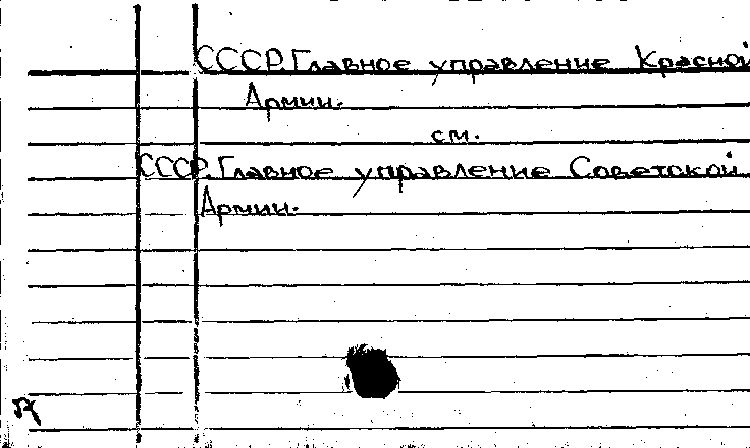 СССР. Главное управление Красной
Армии.
см.
СССР. Главное управление Советской
Армии.